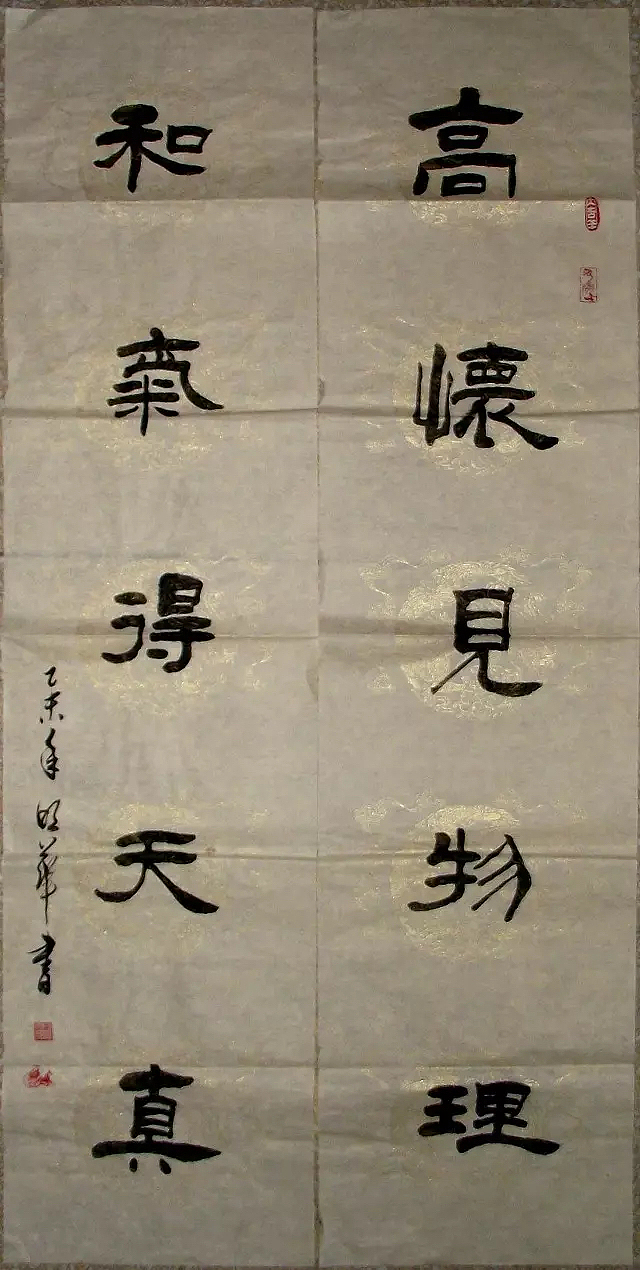 高懷見物理
和氣得天真
乙未年明華書